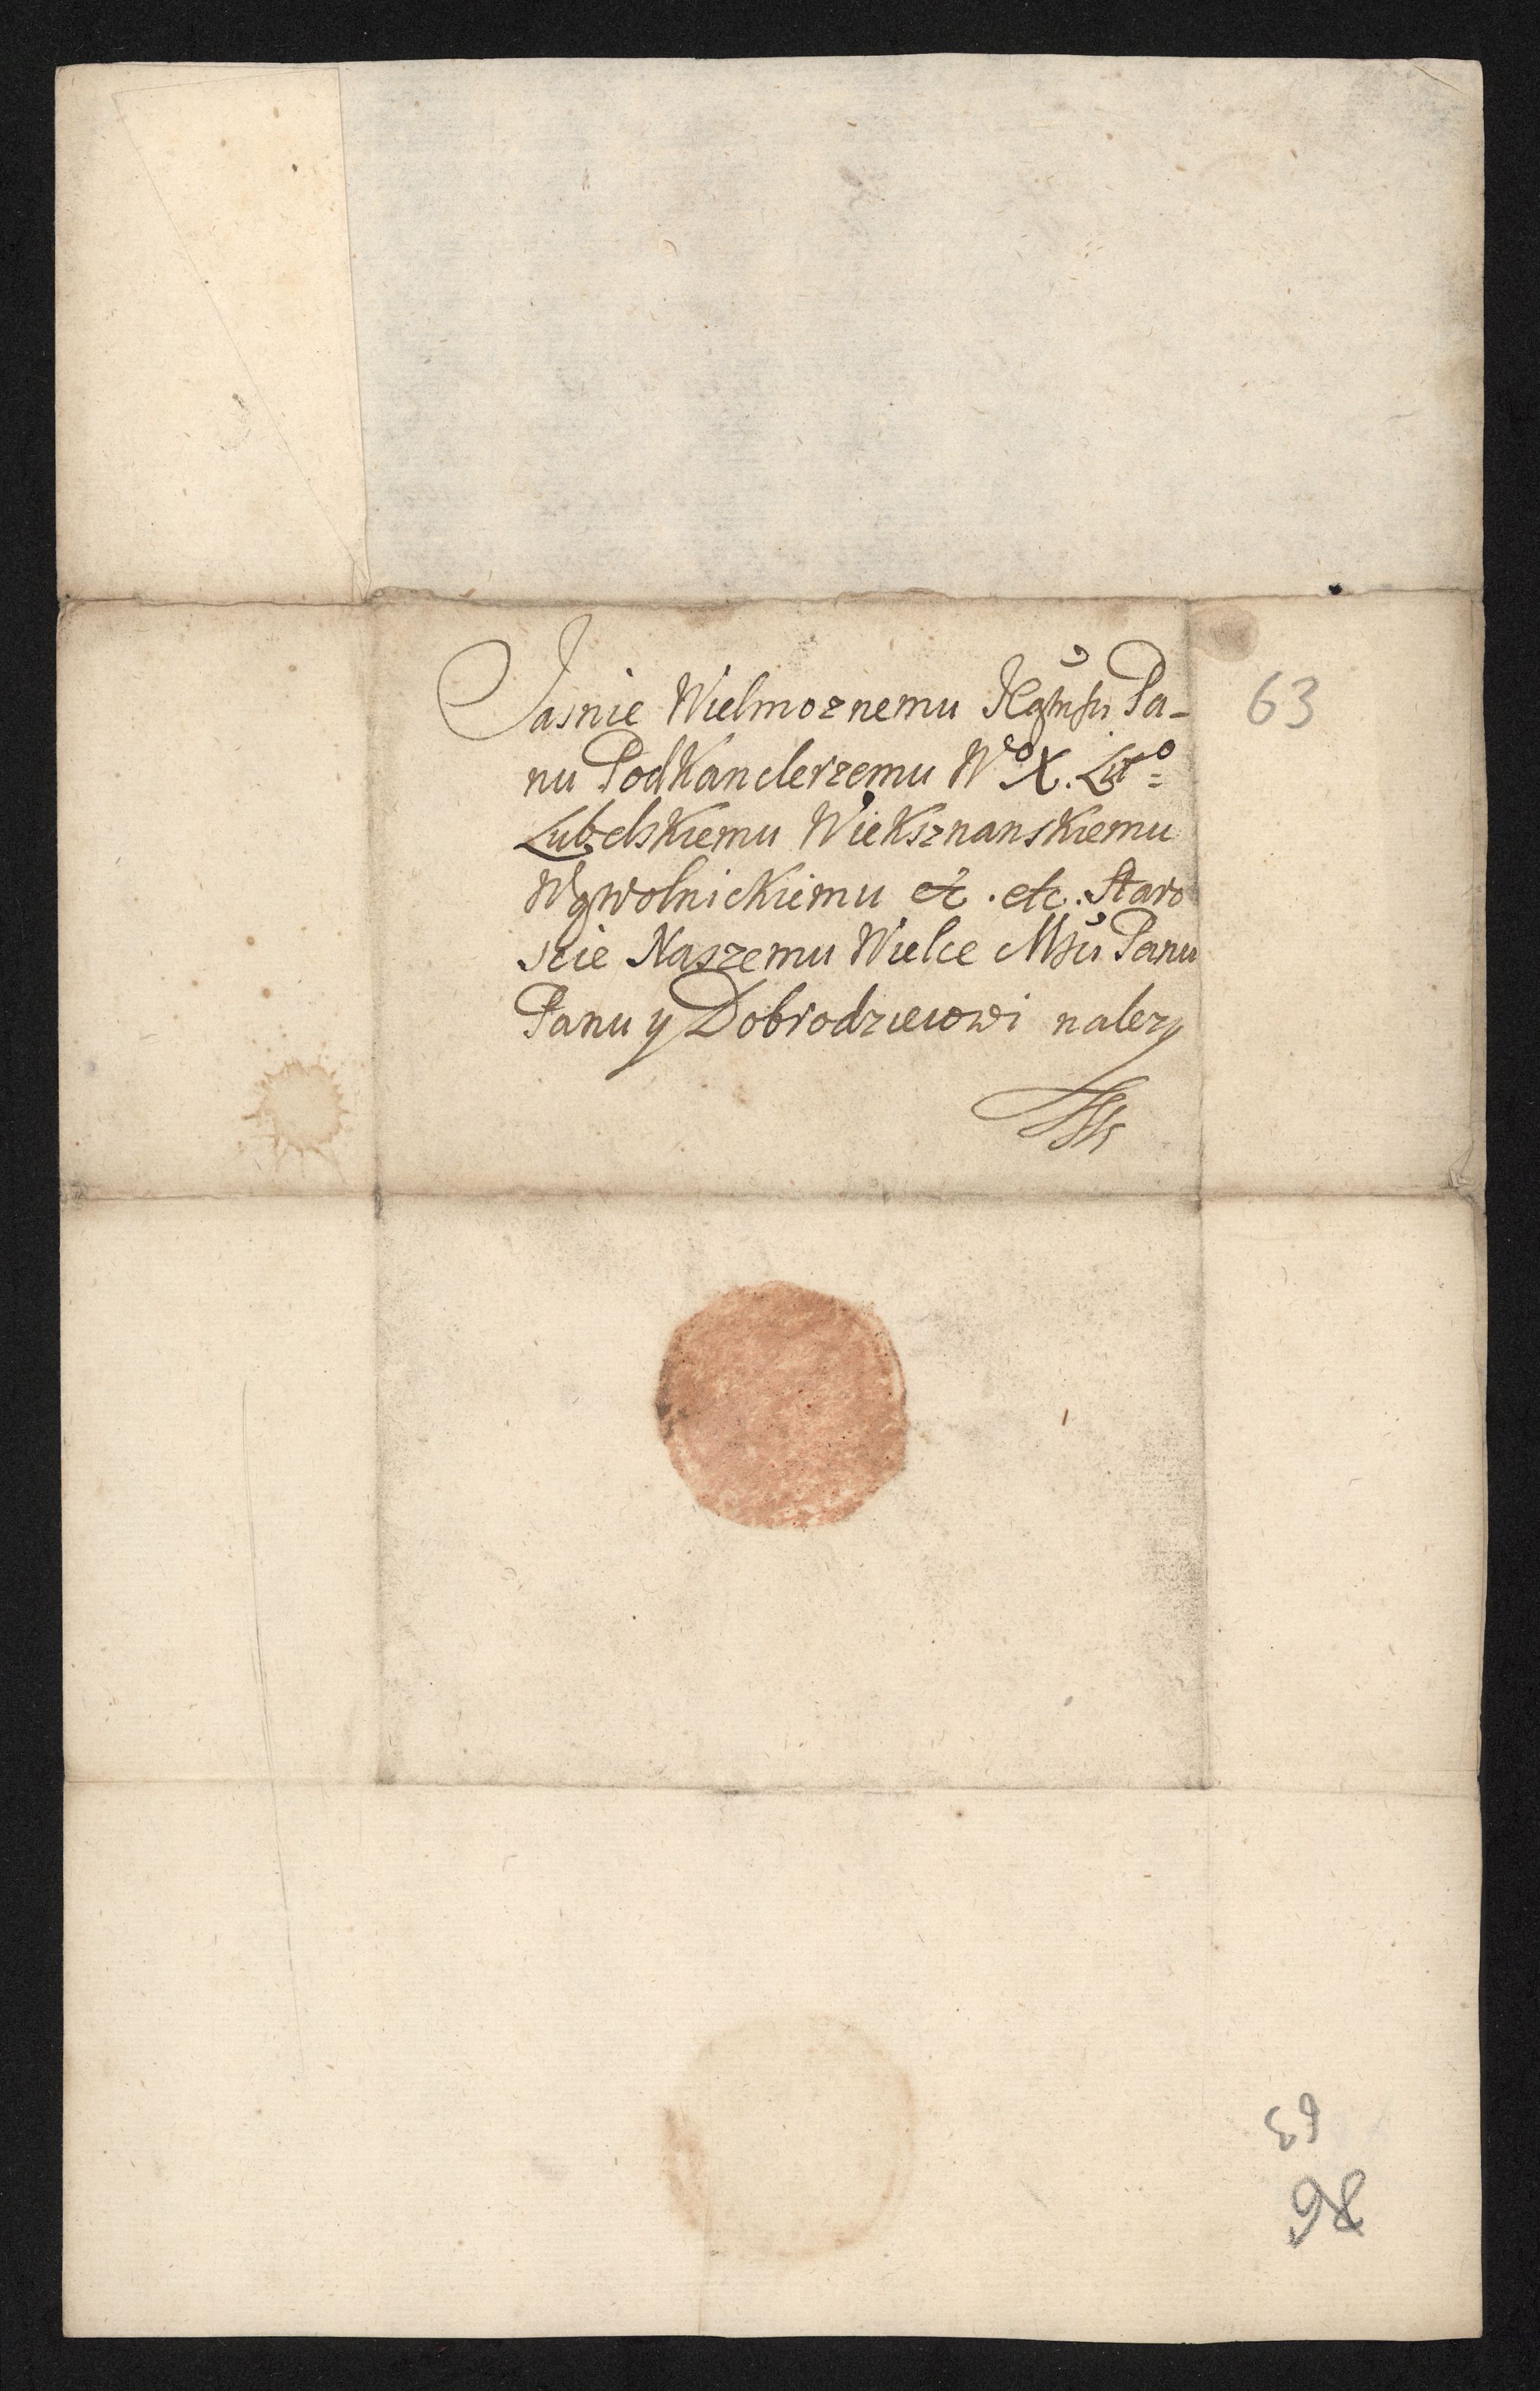 Jasnie Wielmoznemu Jegmsu Pa-
63
nu PodKanclerzemu Wo X. Lito=
LubelsKiemu WieKsznansKiemu
WąwolnicKiemu etc. etc. Staro
scie Naszemu Wielce Msu Panu
Panu y Dobrodzieiowi nalezy
63
98